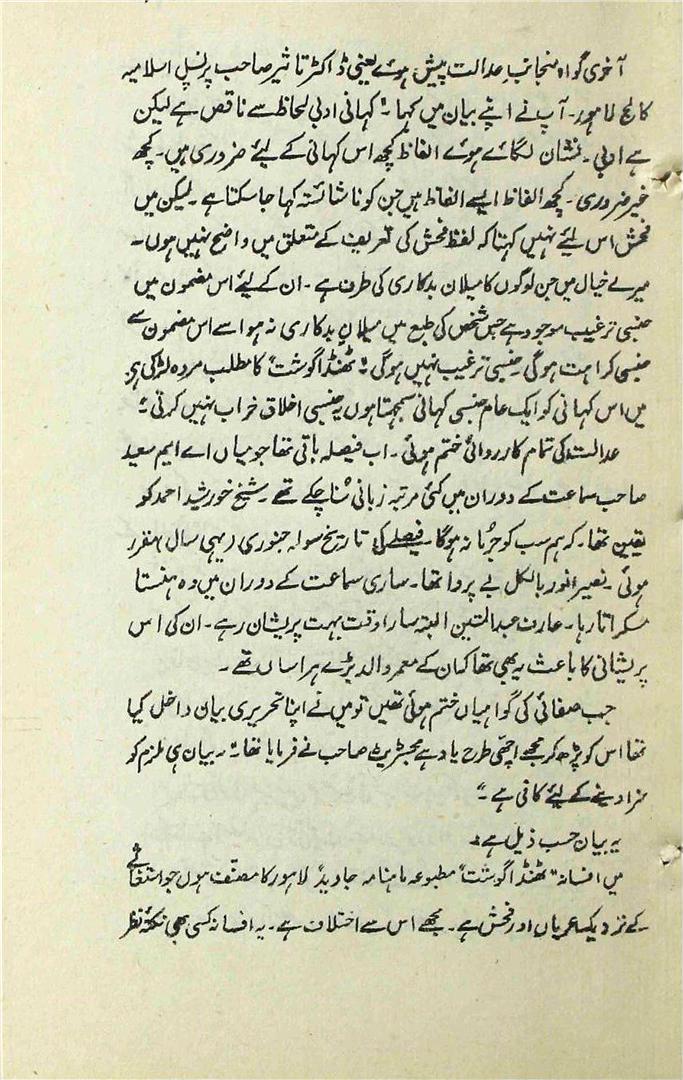 آخری گواہ منجانب عدالت پیش ہوئے یعنی ڈاکٹر تاثیر صاحب پرنسپل اسلامیہ
کالج لاہور۔ آپ نے اپنے بیان میں کہا "کہانی ادبی لحاظ سے ناقص ہے لیکن
ہے ادبی۔ نشان لگائے ہوئے الفاظ کچھ اس کہانی کے لیئے ضروری ہیں۔ کچھ
غیر ضروری۔ کچھ الفاظ ایسے الفاظ ہیں جن کو ناشائستہ کہا جا سکتا ہے۔ لیکن میں
فحش اس لیئے نہیں کہتا کہ لفظ فحش کی تعریف کے متعلق میں واضح نہیں ہوں۔
میرے خیال میں جن لوگوں کا میلان بدکاری کی طرف ہے۔ ان کے لیئے اس مضمون میں
جنسی ترغیب موجود ہے جس شخص کی طبع میں میلانِ بدکاری نہ ہو اسے اس مضمون سے
جنسی کراہت ہوگی۔ جنسی ترغیب نہیں ہوگی "ٹھنڈا گوشت" کا مطلب مردہ لڑکی ہے
میں اس کہانی کو ایک عام جنسی کہانی سمجھتا ہوں یہ جنسی اخلاق خراب نہیں کرتی"
عدالت کی تمام کارروائی ختم ہوئی۔ اب فیصلہ باقی تھا جو میاں اے ایم سعید
صاحب سماعت کے دوران میں کئی مرتبہ زبانی سُنا چکے تھے۔ شیخ خورشید احمد کو
یقین تھا۔ کہ ہم سب کو جرمانہ ہوگا۔ فیصلے کی تاریخ سولہ جنوری (یہی سال) مقرر
ہوئی۔ نصیر انور بالکل بے پروا تھا۔ ساری سماعت کے دوران میں وہ ہنستا
مسکراتا رہا۔ عارف عبدالمتین البتہ سارا وقت بہت پریشان رہے۔ ان کی اس
پریشانی کا باعث یہ بھی تھا کہ ان کے معمر والد بڑے ہراساں تھے۔
جب صفائی کی گواہیاں ختم ہوئی تھیں تو میں نے اپنا تحریری بیان داخل کیا
تھا اس کو پڑھ کر مجھے اچھی طرح یاد ہے مجسٹریٹ صاحب نے فرمایا تھا "یہ بیان ہی ملزم کو
سزا دینے کے لیئے کافی ہے۔"
یہ بیان حسب ذیل ہے:
میں افسانہ "ٹھنڈا گوشت" مطبوعہ ماہنامہ جاوید لاہور کا مصنف ہوں جو استغاثے
کے نزدیک عریاں اور فحش ہے۔ مجھے اس سے اختلاف ہے۔ یہ افسانہ کسی بھی نکتۂ نظر